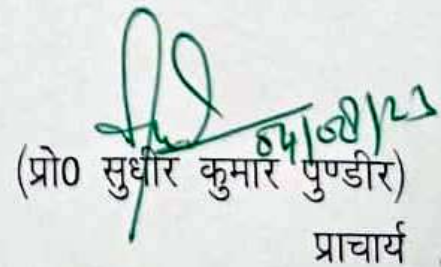 04/08/23
(प्रो0 सुधीर कुमार पुण्डीर)
प्राचार्य